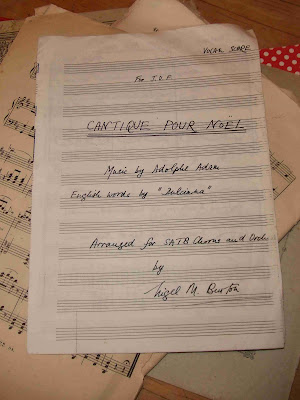 VOCAL SCORE
For J.O.F.
CANTIQUE POUR NOËL
Music by Adolphe Adam
English words by "Dulcinna"
Arranged for SATB Chorus and Orch:
by
Nigel M. Burton